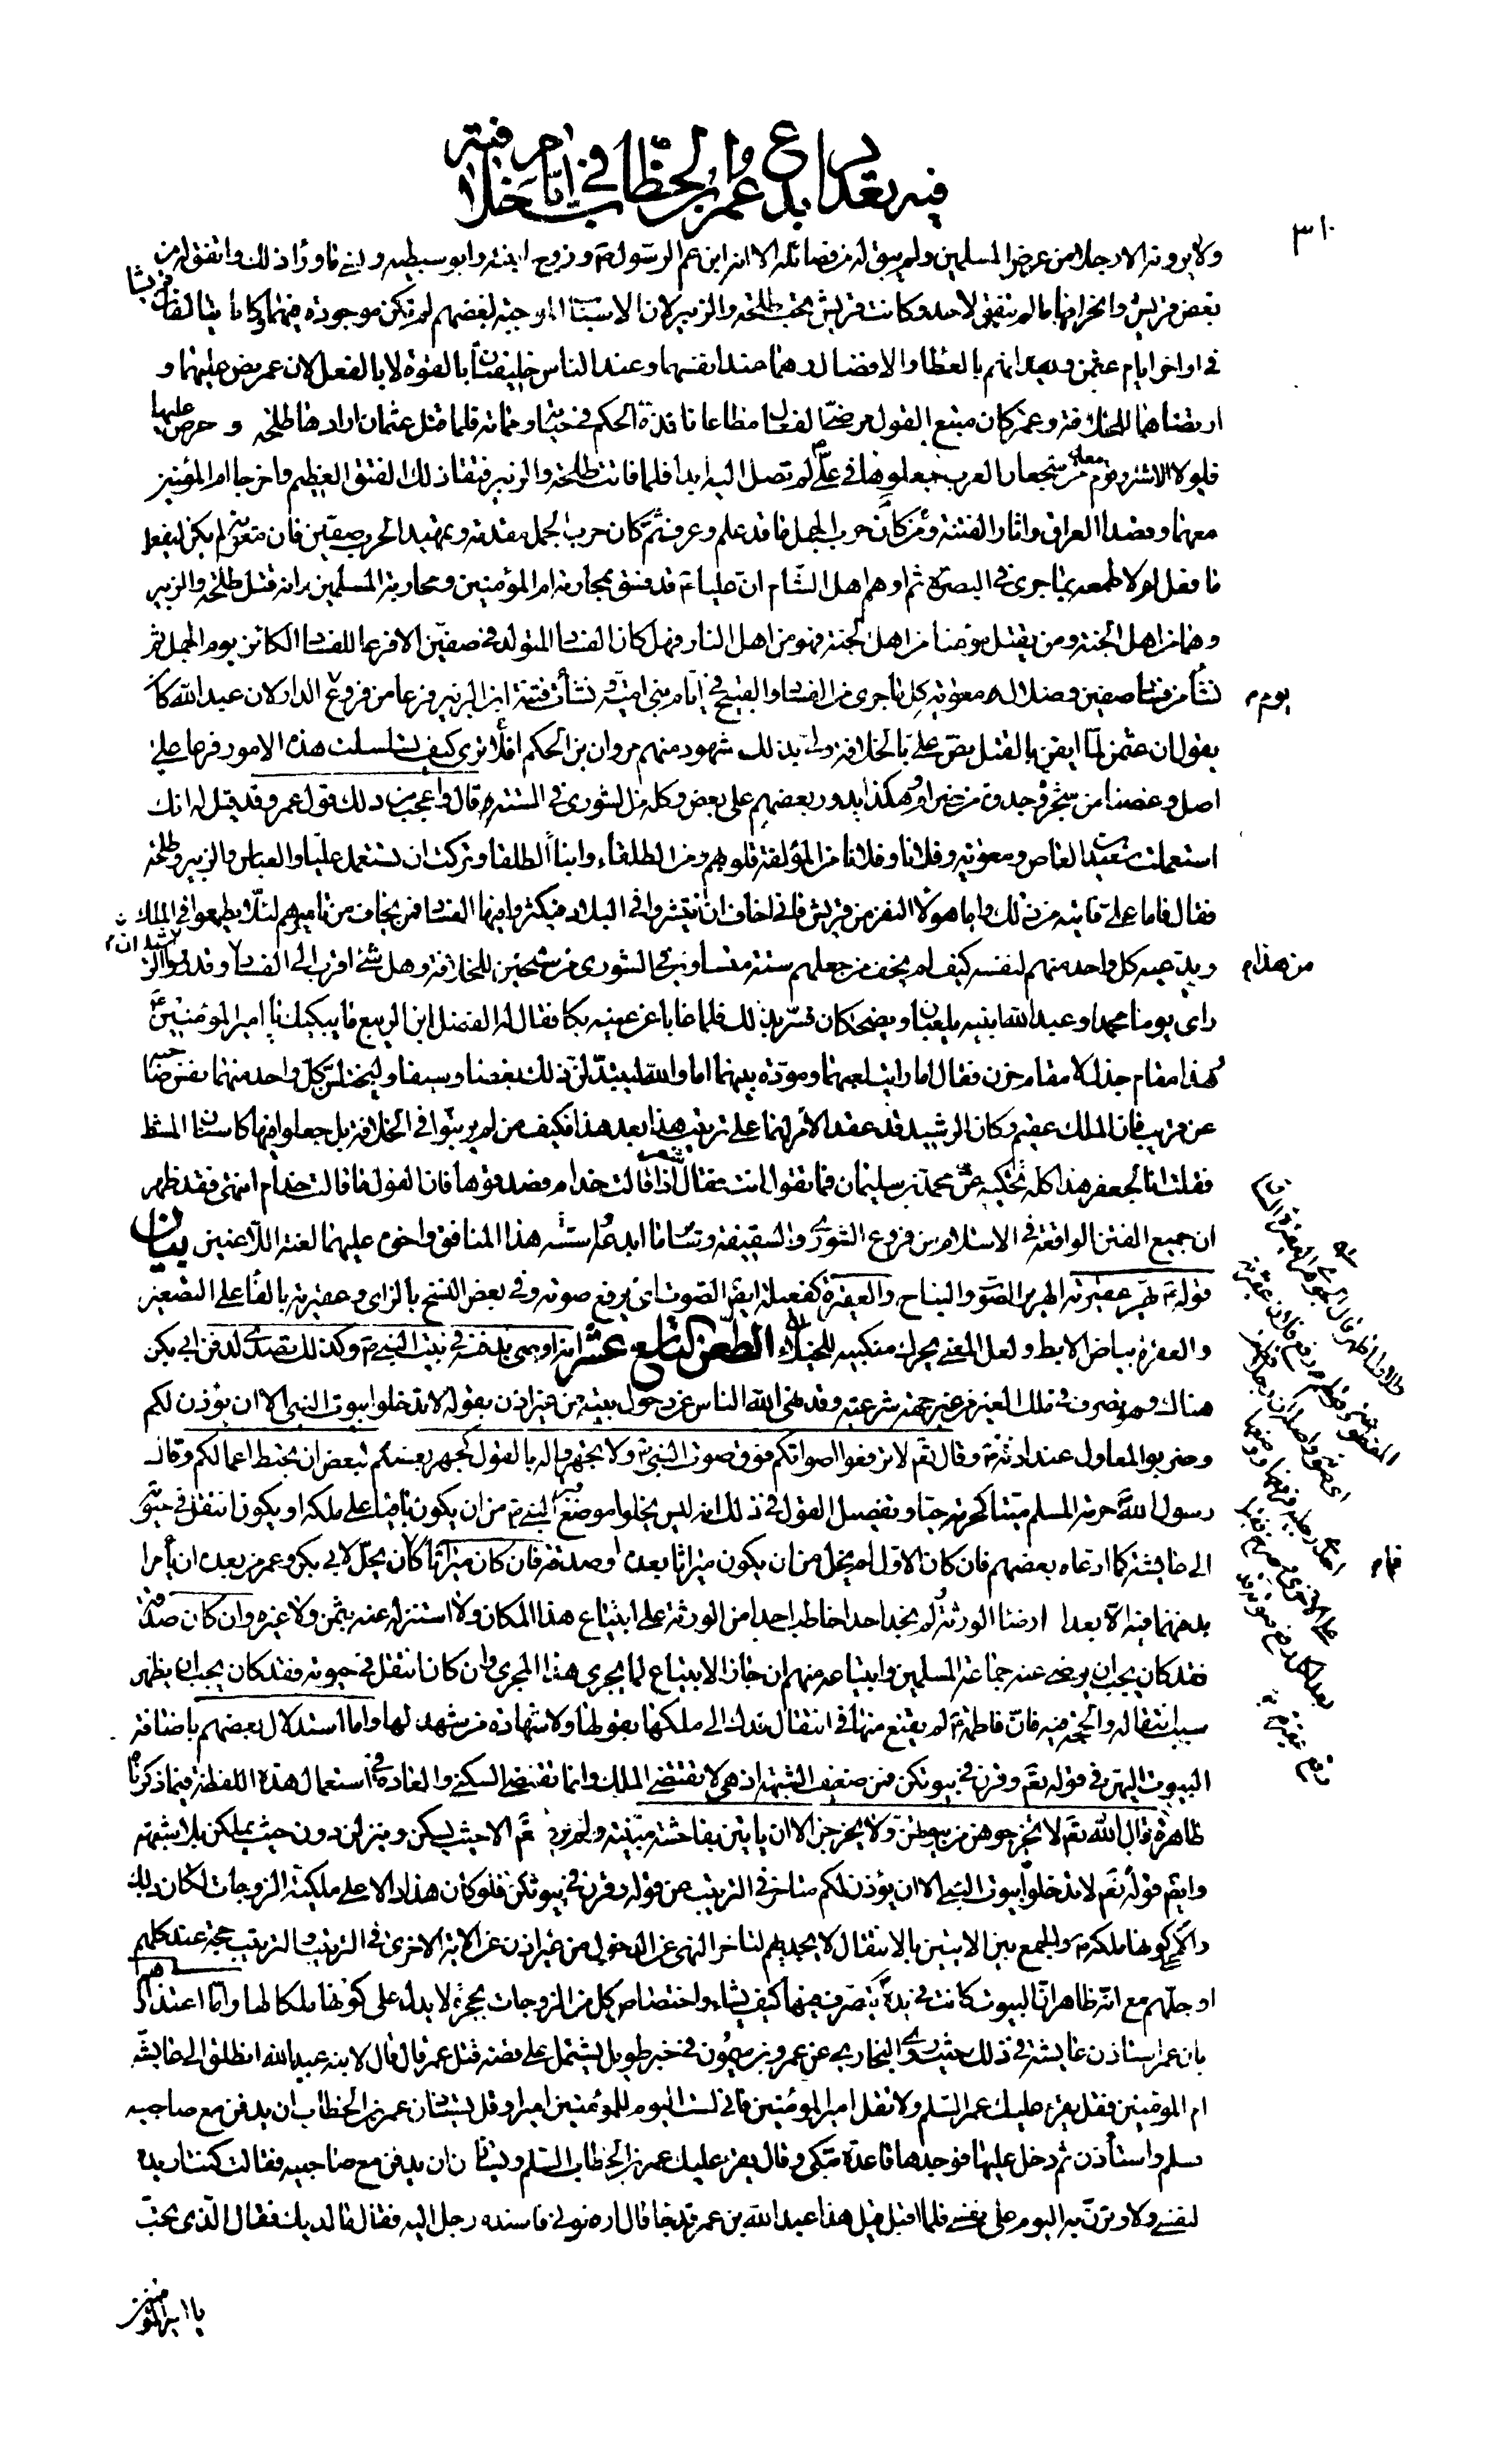 فيه تعديد بدع عمر بن الخطاب في أيام خلافته
٣١٠
ولا يرونه الا رجلا من عرض المسلمين ولم يبق له من فضائله الا انه ابن عم الرسول ص وزوج ابنته وابو سبطيه ونسي ما وراء ذلك واتفق له من
بغض قريش وانحرافها ما لم يتفق لاحد وكانت قريش تحب طلحة والزبير لان الاسباب الموجبة لبغضهم لم تكن موجودة فيهما وكانا يتالفان قريشا
في اواخر ايام عثمن ويعدانهم بالعطاء والافضال وهما عند انفسهما وعند الناس خليفتان بالقوة لا بالفعل لان عمر نص عليهما و
ارتضاهما للخلافة وعمر كان متبع القول مرضي الفعال مطاعا نافذ الحكم في حياته ومماته فلما قتل عثمان ارادها طلحة و حرص عليها
فلولا الاشتر وقوم معه من شجعان العرب جعلوها في علي لم تصل اليه ابدا فلما فاتت طلحة والزبير فتقا ذلك الفتق العظيم واخرجا ام المؤمنين
معهما وقصدا العراق واثارا الفتنة وكان من حرب الجمل ما قد علم وعرف ثم كان حرب الجمل مقدمة وتمهيدا لحرب صفين فان معوية لم يكن ليفعل
ما فعل لولا طمعه بما جرى في البصرة ثم اوهم اهل الشام ان عليا ع قد فسق بمحاربة ام المؤمنين ومحاربة المسلمين وانه قتل طلحة والزبير
وهما من اهل الجنة ومن يقتل مؤمنا من اهل الجنة فهو من اهل النار فهل كان الفساد المتولد في صفين الا فرعا للفساد الكائن يوم الجمل ثم
نشأ من فساد صفين وضلال معوية كل ما جرى من الفساد والقبيح في ايام بني امية ونشأت فتنة ابن الزبير فرعا من فروع يوم الدار لان عبد الله كان
يقول ان عثمن لما ايقن بالقتل نص علي بالخلافة ولي بذلك شهود منهم مروان بن الحكم افلا ترى كيف تسلسلت هذه الامور فرعا على
اصل وغصنا من شجرة وجذوة من ضرام وهكذا يدور بعضهم على بعض وكله من الشورى في الستة قال واعجب من ذلك قول عمر وقد قيل له انك
استعملت سعيد بن العاص ومعوية وفلانا وفلانا من المؤلفة قلوبهم ومن الطلقاء وابناء الطلقاء وتركت ان تستعمل عليا والعباس والزبير وطلحة
فقال فاما علي فانبه من ذلك واما هؤلاء النفر من قريش فاني اخاف ان ينتشروا في البلاد فيكثروا فيها الفساد فمن يخاف من تاميرهم لئلا يطمعوا في الملك
ويدعيه كل واحد منهم لنفسه كيف لم يخف من جعلهم ستة متساوين في الشورى مرشحين للخلافة وهل شئ اقرب الى الفساد من هذا وقد رووا ان الرشيد
راى يوما محمدا وعبد الله ابنيه يلعبان ويضحكان فسر بذلك فلما غابا عن عينه بكا فقال له الفضل ابن الربيع ما يبكيك يا امير المؤمنين
هذا مقام جذل لا مقام حزن فقال اما رايت لعبهما ومودة بينهما اما والله ليتبدلن ذلك بغضا وسيفا وليختلسن كل واحد منهما نفس صاحبه
عن قريب فان الملك عقيم وكان الرشيد قد عقد الأمر لهما على ترتيب هذا بعد هذا فكيف من لم يرتبوا في الخلافة بل جعلوا فيها كاسنان المشط
فقلت انا لجعفر هذا كله تحكيه عن محمد بن سليمان فما تقول انت فقال اذا قالت حذام فصدقوها فان القول ما قالت حذام انتهى فقد ظهر
ان جميع الفتن الواقعة في الاسلام من فروع الشورى والسقيفة وسائر ما ابدعه واسسه هذا المنافق واخوه عليهما لعنة اللاعنين بيان
قوله نهر عقيرته الهرير الصوت والنباح والعقيرة كفعيلة ايضا الصوت اي يرفع صوته وفي بعض النسخ بالزاي وعفيرته بالفاء على التصغير
والعفرة بياض الابط ولعل المعنى يحرك منكبيه للخيلاء الطعن التاسع عشر انه اوصى بدفنه في بيت النبي ص وكذلك تصدى لدفن ابي بكر
هناك وهو تصرف في ملك الغير من غير جهة شرعية وقد نهى الله الناس عن دخول بيته من غير اذن بقوله لا تدخلوا بيوت النبي الا ان يؤذن لكم
وضربوا المعاول عند اذنه ص وقال تعم لا ترفعوا اصواتكم فوق صوت النبي ولا تجهروا له بالقول كجهر بعضكم لبعض ان تحبط اعمالكم وقال
رسول الله حرمة المسلم ميتا كحرمته حيا وتفصيل القول في ذلك انه ليس يخلوا موضع قبر النبي ص من ان يكون باقيا على ملكه او يكون انتقل في حيوته
الى عايشة كما ادعاه بعضهم فان كان الاول لم يخل من ان يكون ميراثا بعده او صدقة فان كان ميراثا فما كان يحل لابي بكر وعمر من بعده ان يأمرا
بدفنهما فيه الا بعد ارضاء الورثة ولم نجد احدا خاطب احدا من الورثة على ابتياع هذا المكان ولا استنزله عنه بثمن ولا غيره وان كان صدقة
فقد كان يجب ان يرضى عنه جماعة المسلمين وابتياعه منهم ان جاز الابتياع لما يجري هذا المجرى وان كان انتقل في حيوته فقد كان يجب ان يظهر
سبب انتقاله والحجة فيه فان فاطمة ع لم يقنع منها في انتقال فدك الى ملكها بقولها ولا شهادة من شهد لها واما استدلال بعضهم باضافة
البيوت اليهن في قوله تعم وقرن في بيوتكن فمن ضعيف الشبهة اذ هي لا تقتضي الملك وانما تقتضي السكنى والعادة في استعمال هذه اللفظة فيما ذكرناه
ظاهرة قال الله تعم لا تخرجوهن من بيوتهن ولا يخرجن الا ان ياتين بفاحشة مبينة ولم يرد تعم الا حيث يسكن وينزلن دون حيث يملكن بلا شبهة
وايضم قوله تعم لا تدخلوا بيوت النبي الا ان يؤذن لكم متاخر في الترتيب عن قوله وقرن في بيوتكن فلو كان هذا دالا على ملكية الزوجات لكان ذلك
دالا على كونها ملكه ص والجمع بين الايتين بالانتقال لا يجديهم لتاخر النهي عن الدخول من غير اذن عن الاية الاخرى في الترتيب والترتيب حجة عند كلهم
او جلهم مع انه ظاهر ان البيوت كانت في يده ص يتصرف فيها كيف يشاء واختصاص كل من الزوجات بحجرة لا يدل على كونها ملكا لها واما اعتذارهم
بان عمر استاذن عايشة في ذلك حيث روى البخاري عن عمرو بن ميمون في خبر طويل يشتمل على قصة قتل عمر قال قال لابنه عبد الله انطلق الى عايشة
ام المؤمنين فقل يقرء عليك عمر السلم ولا تقل امير المؤمنين فاني لست اليوم للمؤمنين اميرا وقل يستاذن عمر بن الخطاب ان يدفن مع صاحبيه
فسلم واستأذن ثم دخل عليها فوجدها قاعدة تبكي وقال يقرء عليك عمر بن الخطاب السلم ويستاذن ان يدفن مع صاحبيه فقالت كنت اريده
لنفسي ولاوثرن به اليوم على نفسي فلما اقبل قيل هذا عبد الله بن عمر قد جا قال ارفعوني فاسنده رجل اليه فقال ما لديك فقال الذي تحب
يا امير المؤمنين